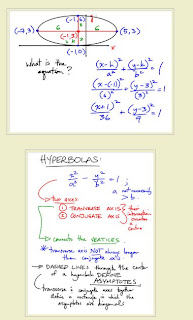 (-1,6)
(-7,3) 6 (-1,3) 6 (5,3)
(-1,0)
What is the
equation?
(x-h)²/a² + (y-k)²/b² = 1
(x-(-1))²/(6)² + (y-3)²/(3)² = 1
(x+1)²/36 + (y-3)²/9 = 1
HYPERBOLAS:
x²/a² - y²/b² = 1
a not necessarily
> b.
→ two axes:
① TRANSVERSE AXIS
② CONJUGATE AXIS
their
intersection
is the
centre
→ connects the VERTICES.
* transverse axis NOT always longer
than conjugate axis
→ DASHED LINES through the center
of a hyperbola DEFINE
ASYMPTOTES
transverse & conjugate axes together
define a rectangle in which the
asymptotes are diagonals